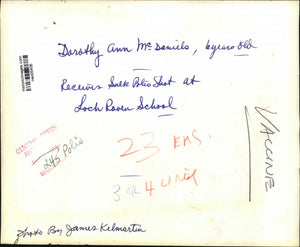 Dorothy Ann McDaniels, 6 years old
Receives Salk Polio Shot at
Loch Raven School
VACCINE
23 EMS.
243 Polio
3 or 4 LINES
Photo By James Kilmartin